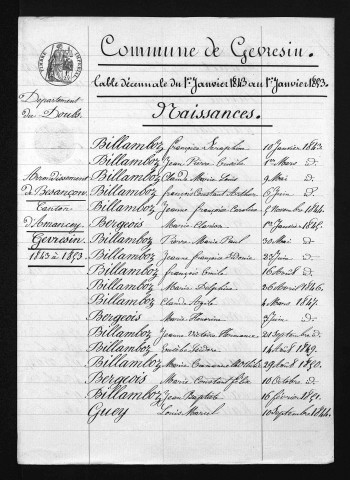 Commune de Gevresin.
Table décennale du 1er Janvier 1843 au 1er Janvier 1853.
Naissances.
Département
du Doubs.
Arrondissement
de Besançon
Canton
d'Amancey
Gevresin
1843 à 1853
Billamboz françois Seraphin 10 Janvier 1843.
Billamboz Jean Pierre 1er Mars d.
Billamboz Claude Marie 9 Mai d.
Billamboz françois Constant 6 Juin d.
Billamboz Jeanne françoise Caroline 5 Novembre 1844.
Bergeois Marie 1er Janvier 1845.
Billamboz Pierre Marie Paul 30 Mai d.
Billamboz Jeanne françoise 23 Juin d.
Billamboz françois Emile 16 Août d.
Billamboz Marie Delphine 26 1846.
Billamboz Claude 4 Mars 1847.
Bergeois Marie 3 Juin d.
Billamboz Jeanne Victoire Hermance 21 Septembre d.
Billamboz Isidore 14 Août 1849.
Billamboz Marie 29 Août 1850.
Bergeois Marie Constant 10 Octobre d.
Billamboz Jean Baptiste 16 février 1851.
Guey Louis Marcel 10 Septembre 1844.